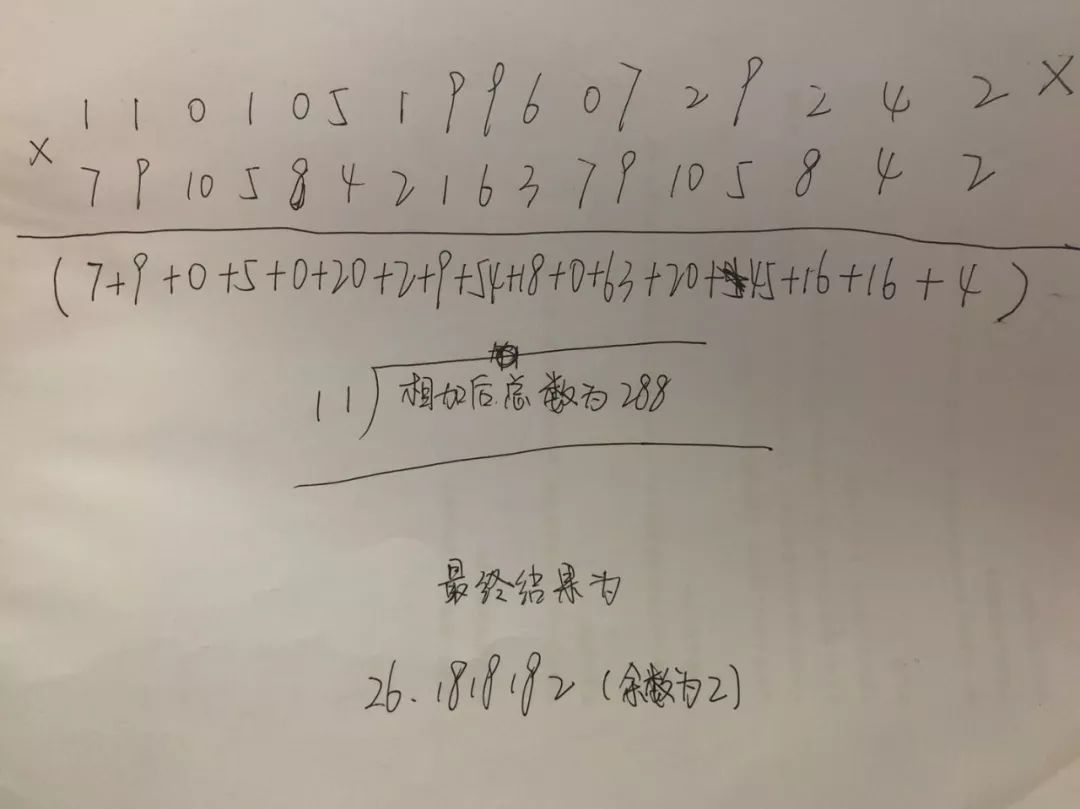 1 1 0 1 0 5 1 9 9 6 0 7 2 9 2 4 2 X
× 7 9 10 5 8 4 2 1 6 3 7 9 10 5 8 4 2
(7+9+0+5+0+20+2+9+54+18+0+63+20+45+16+16+4)
11 相加后总数为288
最终结果为
26.1818182(余数为2)